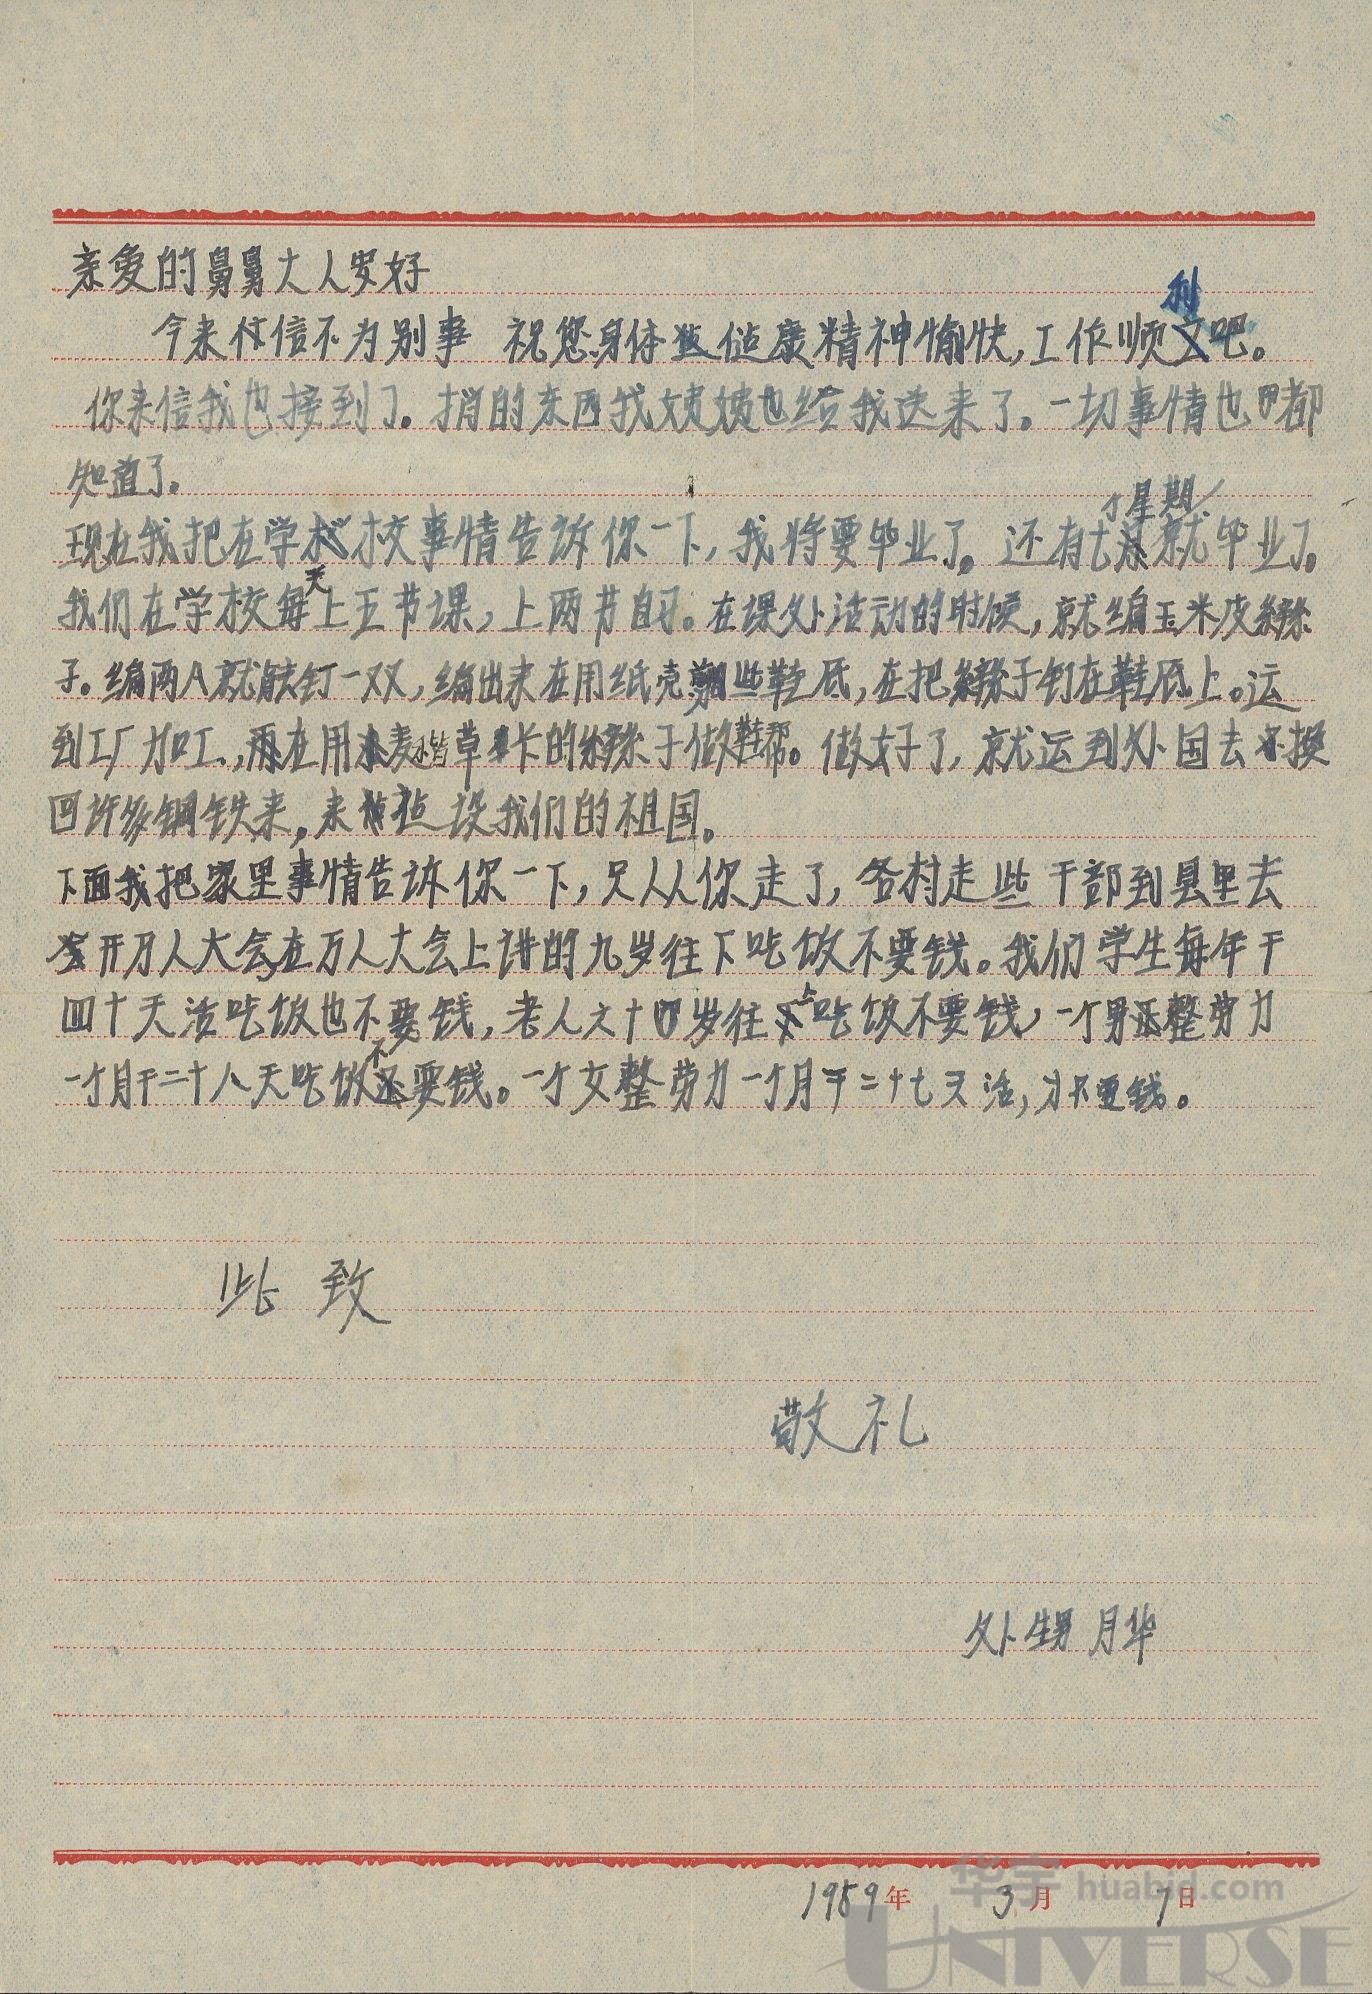 亲爱的舅舅大人安好
今来信不为别事 祝您身体健康精神愉快,工作顺利吧。
你来信我也接到了。捎的东西我姨姨也给我送来了。一切事情也都
知道了。
现在我把在学校事情告诉你一下,我将要毕业了。还有七个星期就毕业了。
我们在学校每天上五节课,上两节自习。在课外活动的时候,就编玉米皮辫
子。编两人就能钉一双,编出来在用纸壳剪些鞋底,在把辫子钉在鞋底上。运
到工厂加工,在用麦秸草卡的辫子做鞋帮。做好了,就运到外国去换
回许多钢铁来,来建设我们的祖国。
下面我把家里事情告诉你一下,只从你走了,各村走些干部到县里去
开万人大会,在万人大会上讲的九岁往下吃饭不要钱。我们学生每年干
四十天活吃饭也不要钱,老人六十四岁往上吃饭不要钱,一个男整劳力
一个月干二十八天吃饭不要钱。一个女整劳力一个月干二十七天活,才不要钱。
此致
敬礼
外甥月华
1959年 3月 7日
华宇 huabid.com
UNIVERSE